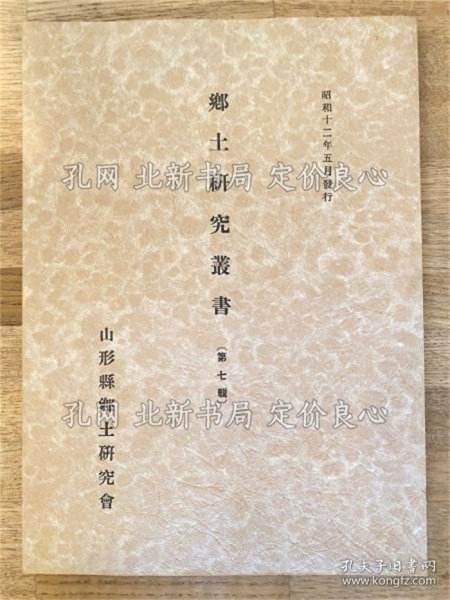 昭和十二年五月發行
鄕土硏究叢書
〔第七輯〕
山形縣鄕土硏究會
孔网 北新书局 定价良心
孔网 北新书局 定价良心
孔夫子旧书网
www.kongfz.com